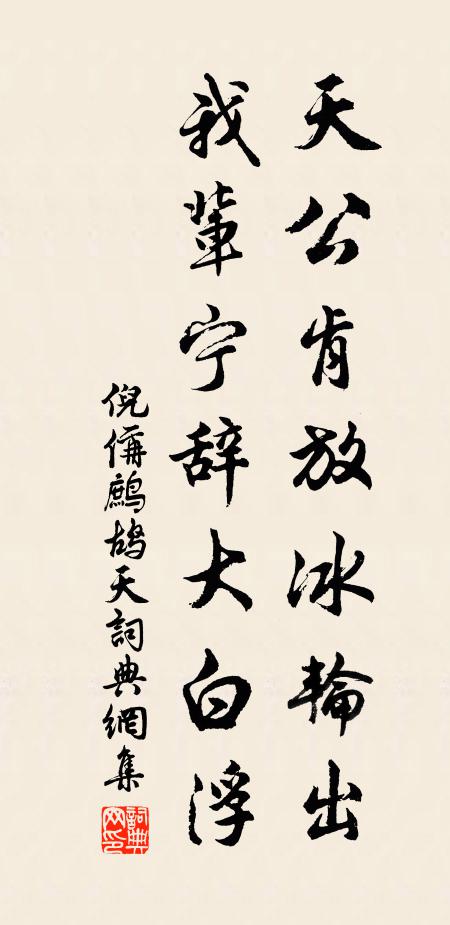 天公肯放冰輪出
我輩宁辞大白浮
倪偁鷓鴣天詞典網集
詞典網印